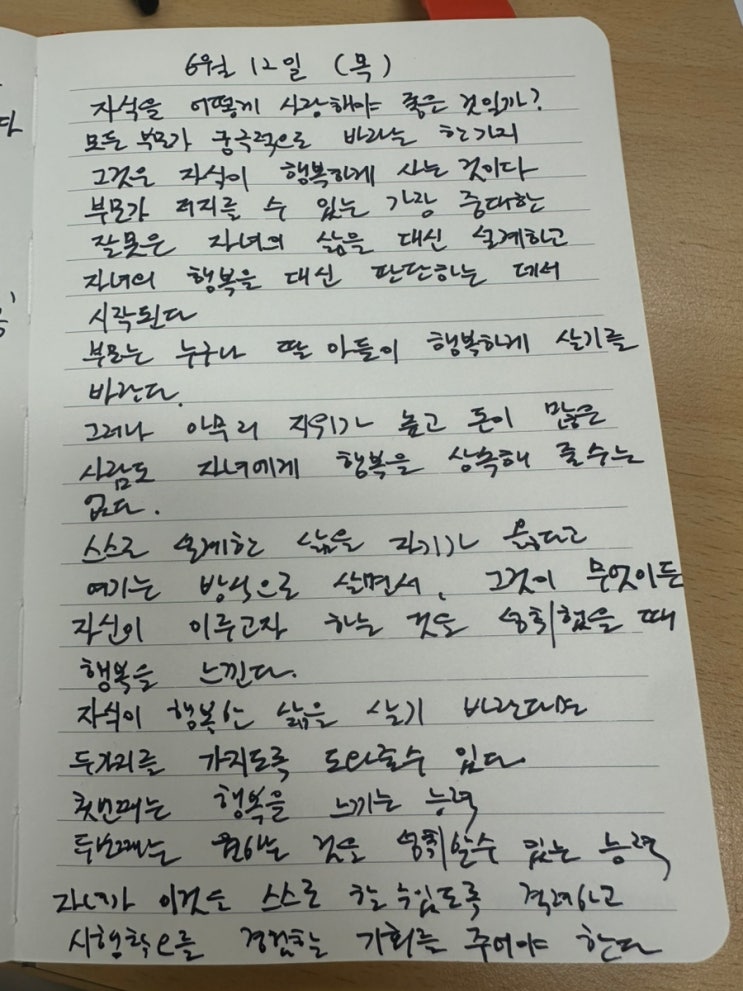 6월 12일 (목)
자식을 어떻게 사랑해야 좋은 것일까?
모든 부모가 궁극적으로 바라는 한가지
그것은 자식이 행복하게 사는 것이다
부모가 저지를 수 있는 가장 중대한
잘못은 자녀의 삶을 대신 설계하고
자녀의 행복을 대신 판단하는 데서
시작된다
부모는 누구나 딸 아들이 행복하게 살기를
바란다.
그러나 아무리 지위가 높고 돈이 많은
사람도 자녀에게 행복을 상속해 줄수는
없다.
스스로 설계한 삶을 자기가 옳다고
여기는 방식으로 살면서, 그것이 무엇이든
자신이 이루고자 하는 것을 성취했을 때
행복을 느낀다.
자식이 행복한 삶을 살기 바란다면
두가지를 가지도록 도와줄수 있다.
첫번째는 행복을 느끼는 능력
두번째는 원하는 것을 성취할수 있는 능력
자녀가 이것을 스스로 할 수있도록 격려하고
시행착오를 경험할 기회를 주어야 한다